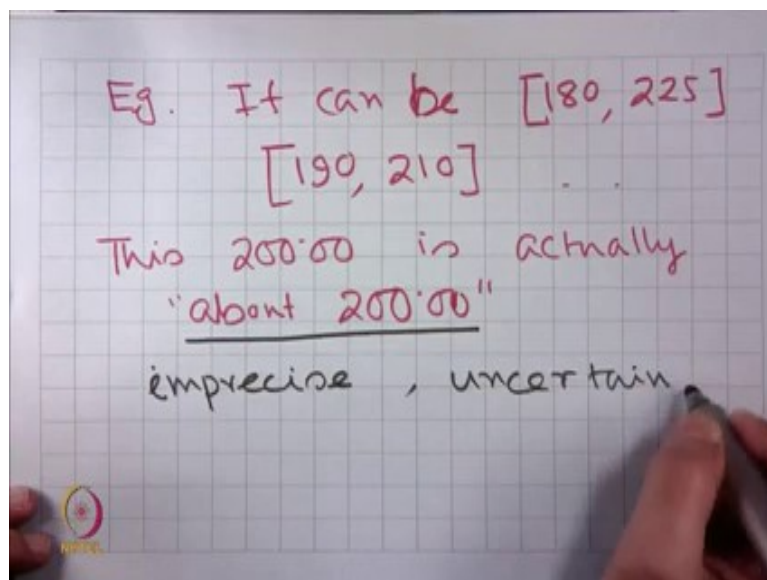 Eg. It can be [180, 225]
[190, 210] . .
This 200.00 is actually
"about 200.00"
imprecise , uncertain
NPTEL